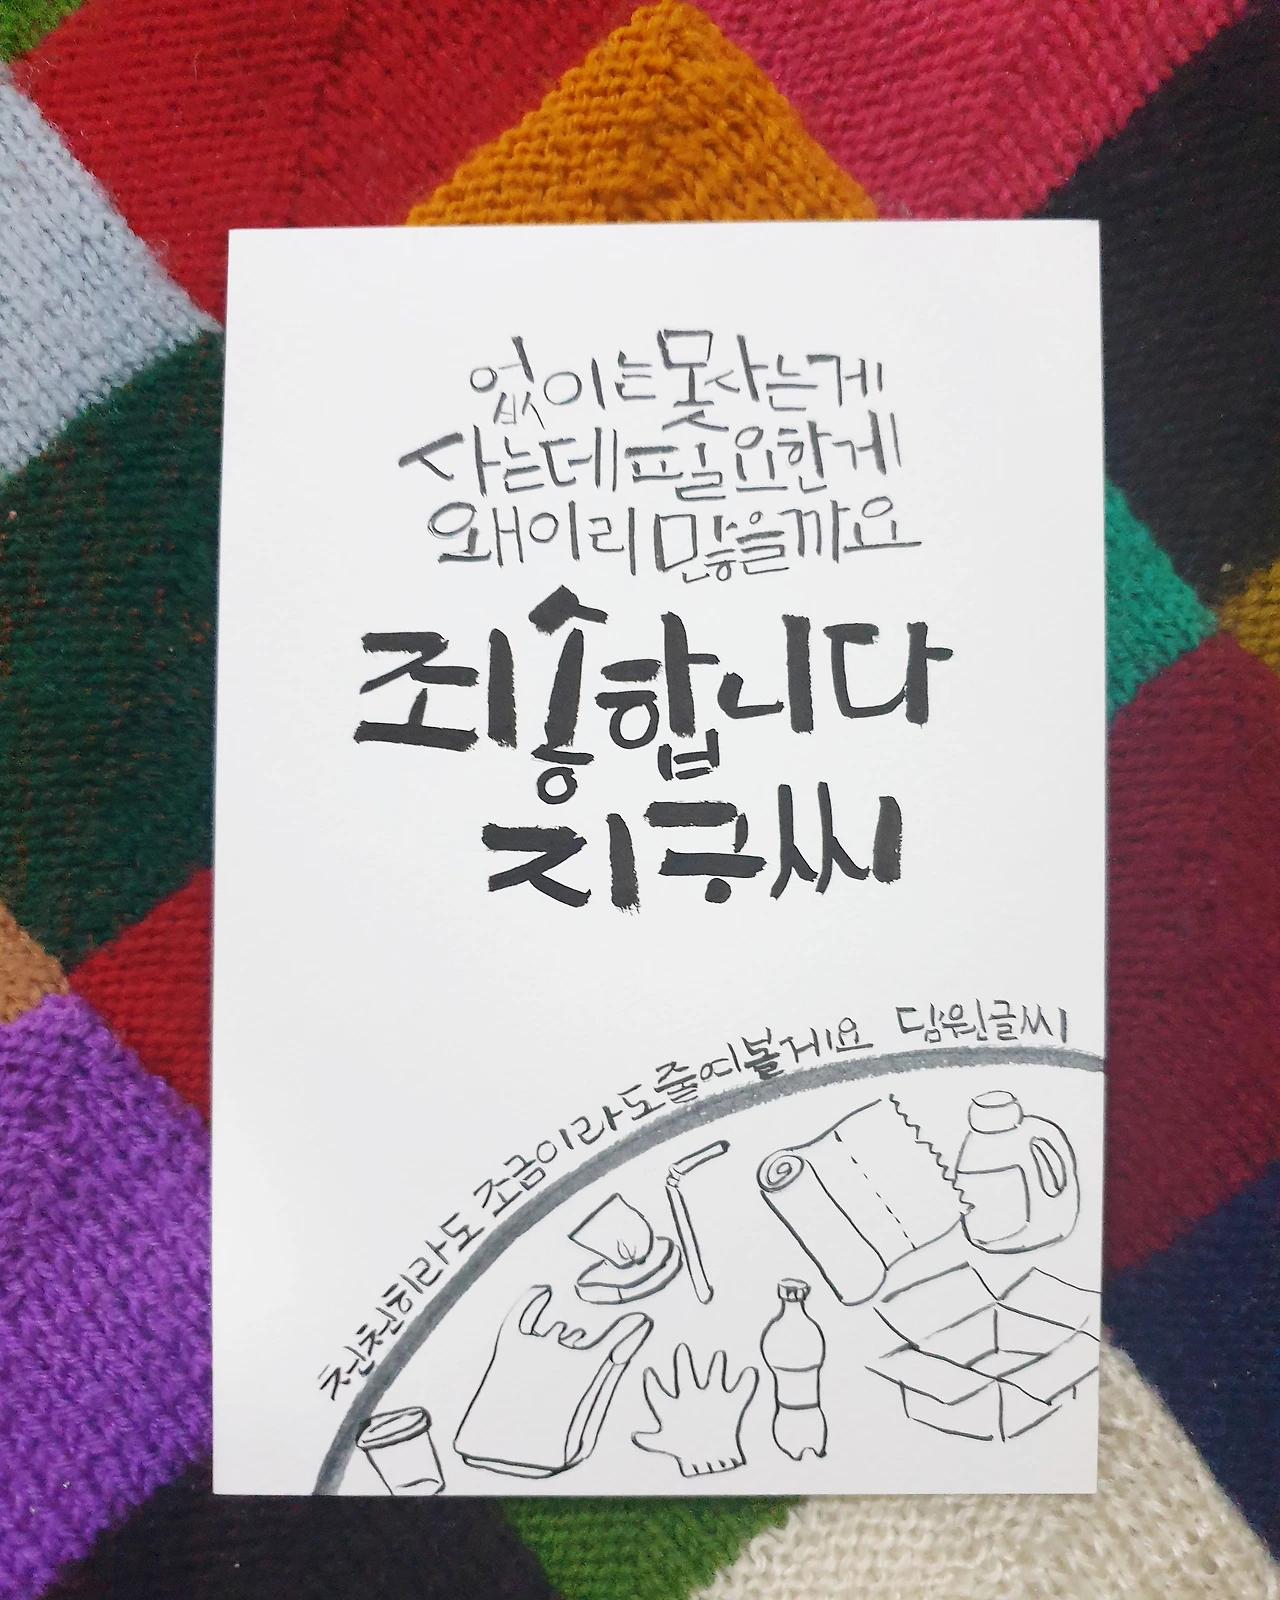 없이는 못사는게
사는데 필요한게
왜이리 많을까요
죄송합니다
지구씨
천천히라도 조금이라도 줄여볼게요 담원글씨